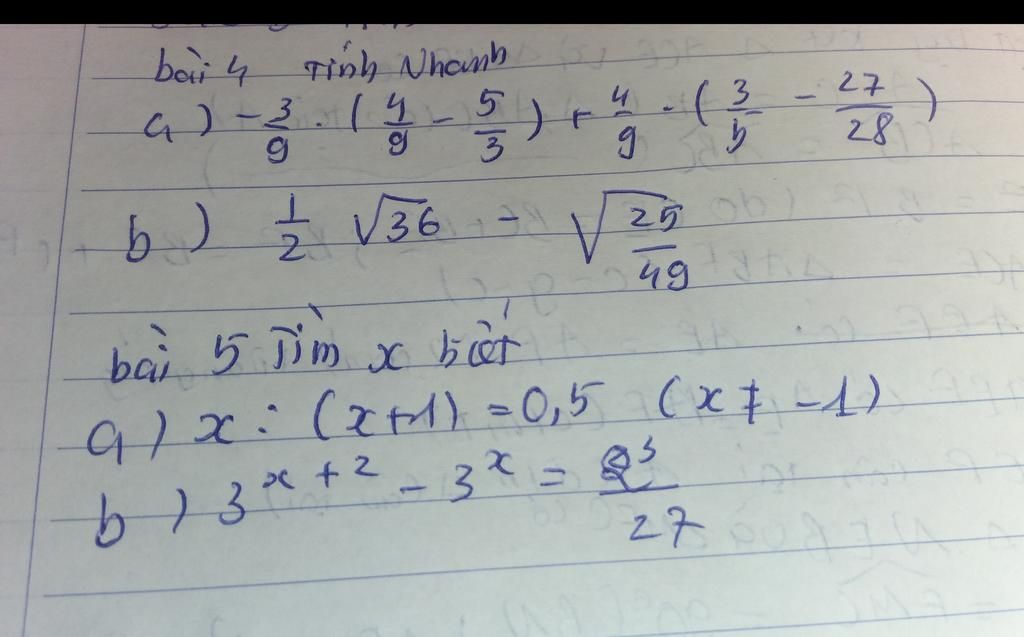 bài 4 Tính Nhanh
a) -3/9 . (4/9 - 5/3) + 4/9 . (3/5 - 27/28)
b) 1/2 √36 - √(25/49)
bài 5 Tìm x biết
a) x : (x+1) = 0,5 (x ≠ -1)
b) 3^(x+2) - 3^x = 2^3/27